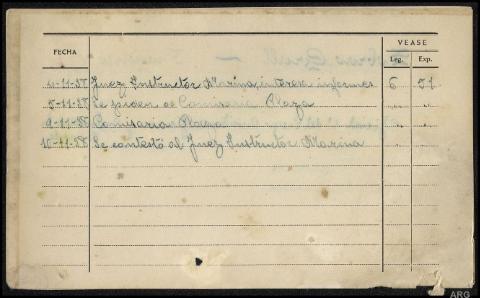 VEASE
FECHA Leg. Exp.
4-11-38 Juez Instructor Marina, interesa informes 6 51
5-11-38 Se piden a Comisaria Plaza " "
9-11-38 Comisaria Plaza " "
10-11-38 Se contestó al Juez Instructor Marina " "
ARG